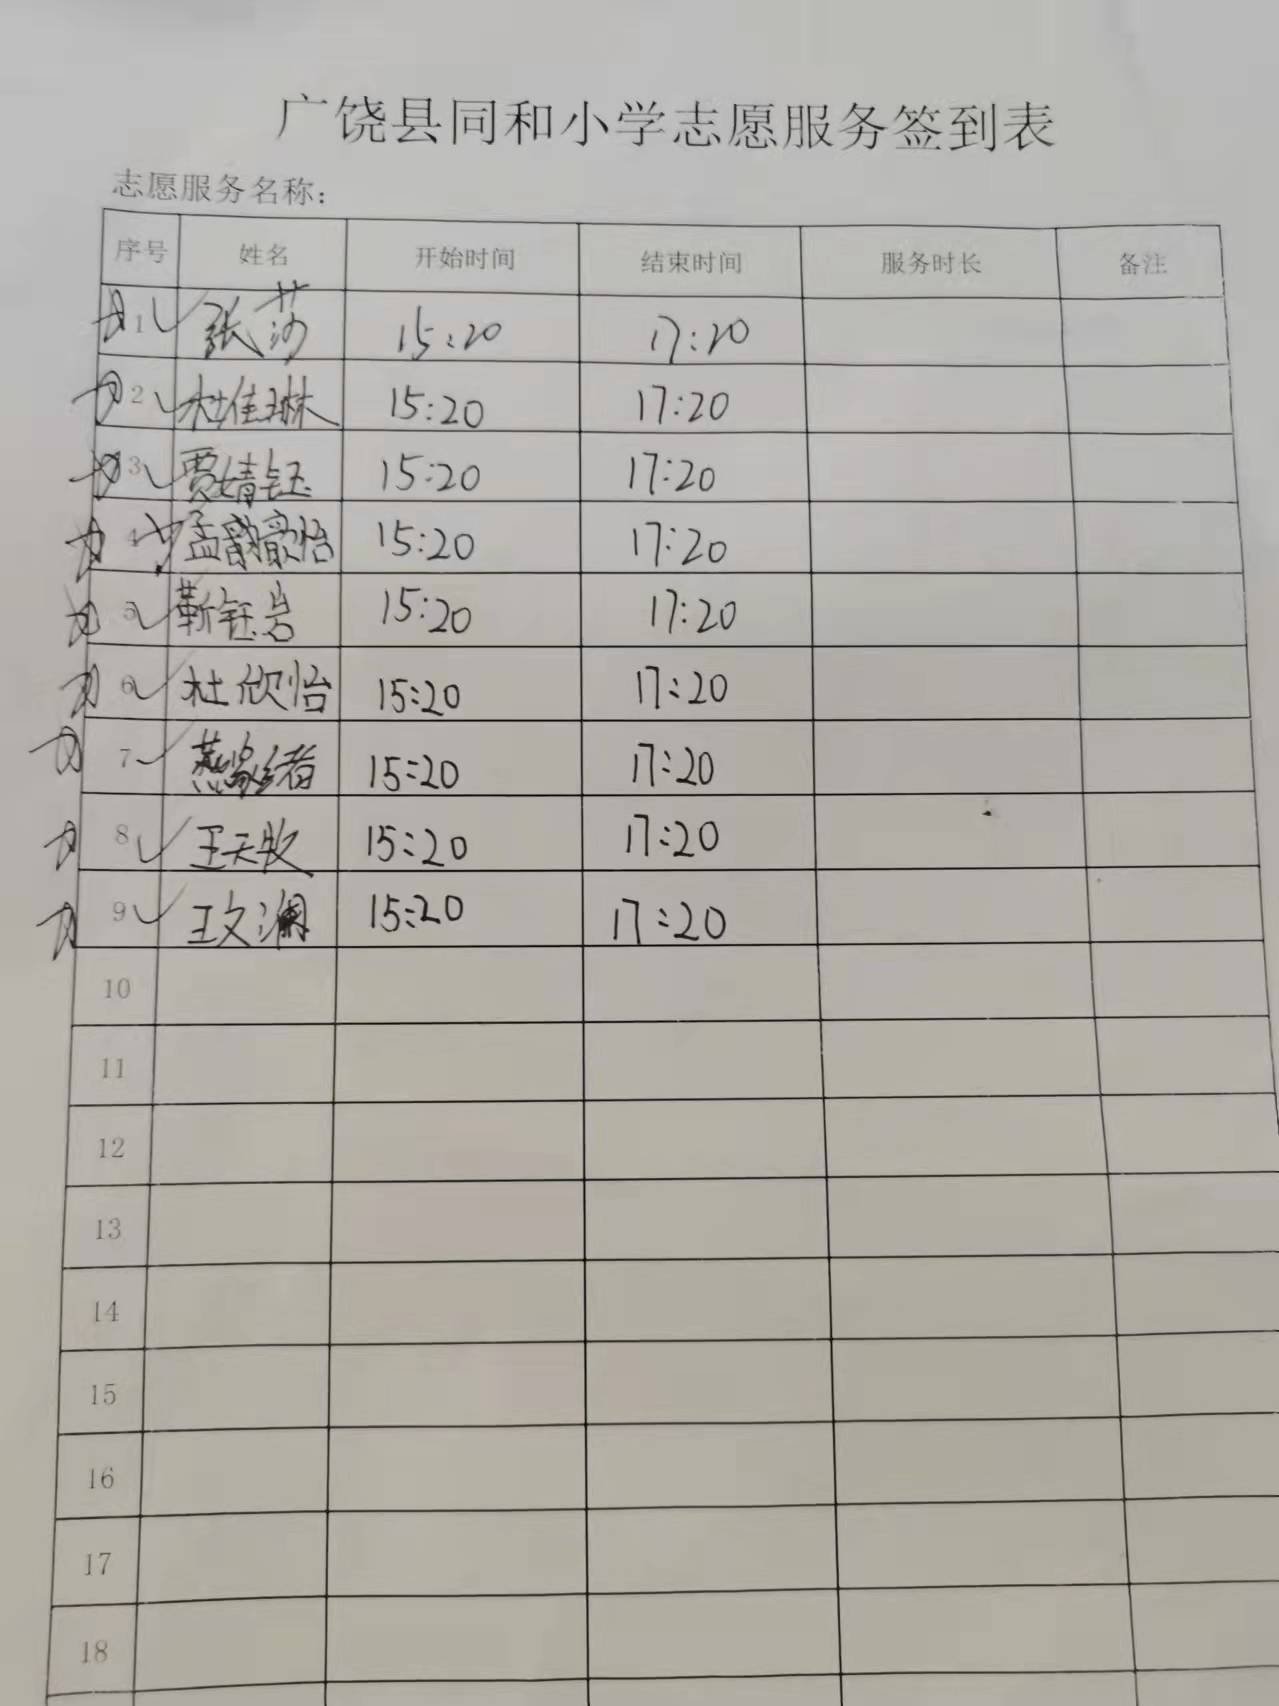 广饶县同和小学志愿服务签到表
志愿服务名称：
序号 姓名 开始时间 结束时间 服务时长 备注
1 张莎 15:20 17:20
2 杜佳琳 15:20 17:20
3 贾婧钰 15:20 17:20
4 孟 怡 15:20 17:20
5 靳钰岩 15:20 17:20
6 杜欣怡 15:20 17:20
7 燕 绪 15:20 17:20
8 王天牧 15:20 17:20
9 王文澜 15:20 17:20
10
11
12
13
14
15
16
17
18